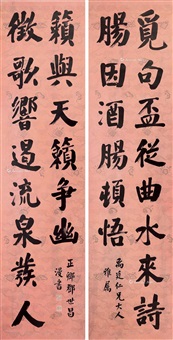 覓句盃從曲水來詩
腸因酒腸頓悟
禹廷仁兄大人
雅屬
徵歌響遏流泉羨人
籟與天籟爭幽
正卿鄧世昌
漫書